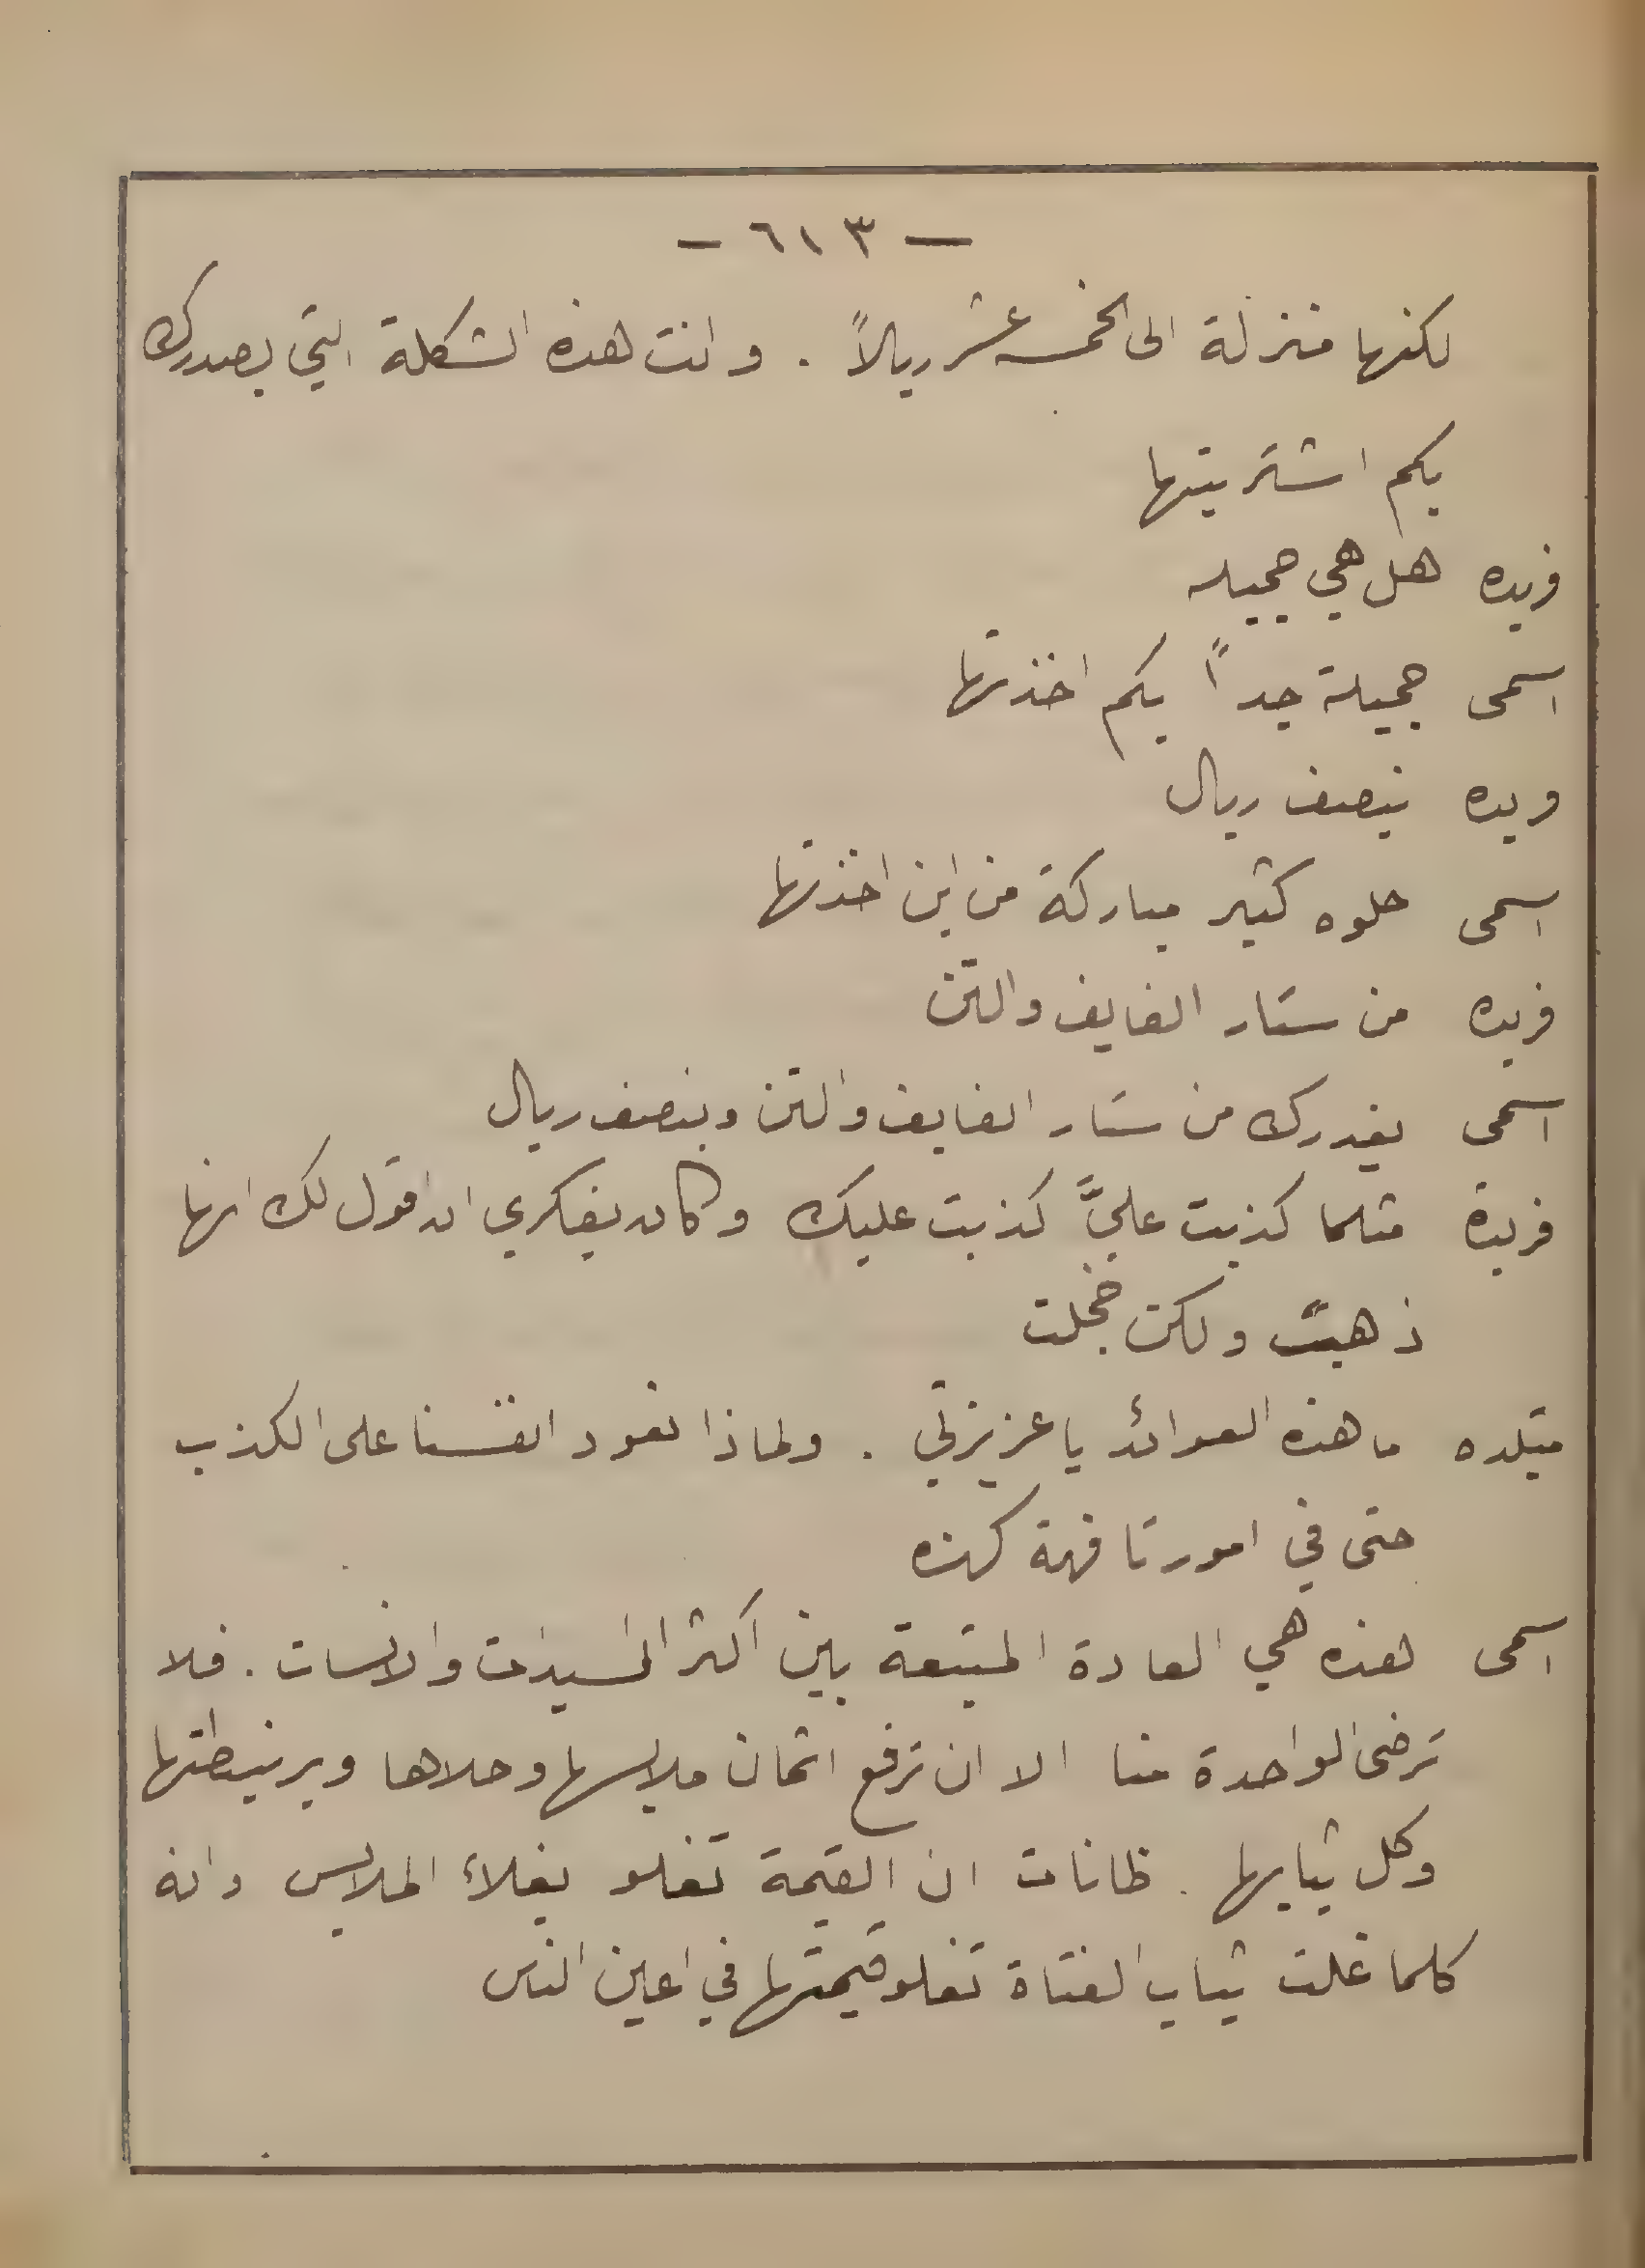 — ٦١٣ —
لكنها منزلة الى الخمسه عشر ريالاً . وانت هذه الشكلة التي بصدرك
بكم اشتريتها
فريده هل هي جميله
اسمى جميلة جداً بكم اخذتها
فريده بنصف ريال
اسمى حلوه كثير مباركة من اين اخذتها
فريده من ستار الفايف والتن
اسمى بقدرك من ستار الفايف والتن وبنصف ريال
فريدة مثلما كذبت عليَّ كذبت عليك وكان بفكري ان اقول لك انها
ذهبت ولكن خجلت
متلده ما هذه العوائد يا عزيزتي . ولماذا نعود انفسنا على الكذب
حتى في امور تافهة كهذه
اسمى هذه هي العادة المتبعة بين اكثر السيدات والانسات . فلا
ترضى الواحدة منا الا ان ترفع اثمان ملابسها وحلاها وبرنيطتها
وكل ثيابها . ظانات ان القيمة تغلو بغلاء الملابس وانه
كلما غلت ثياب الفتاة تغلو قيمتها في اعين الناس